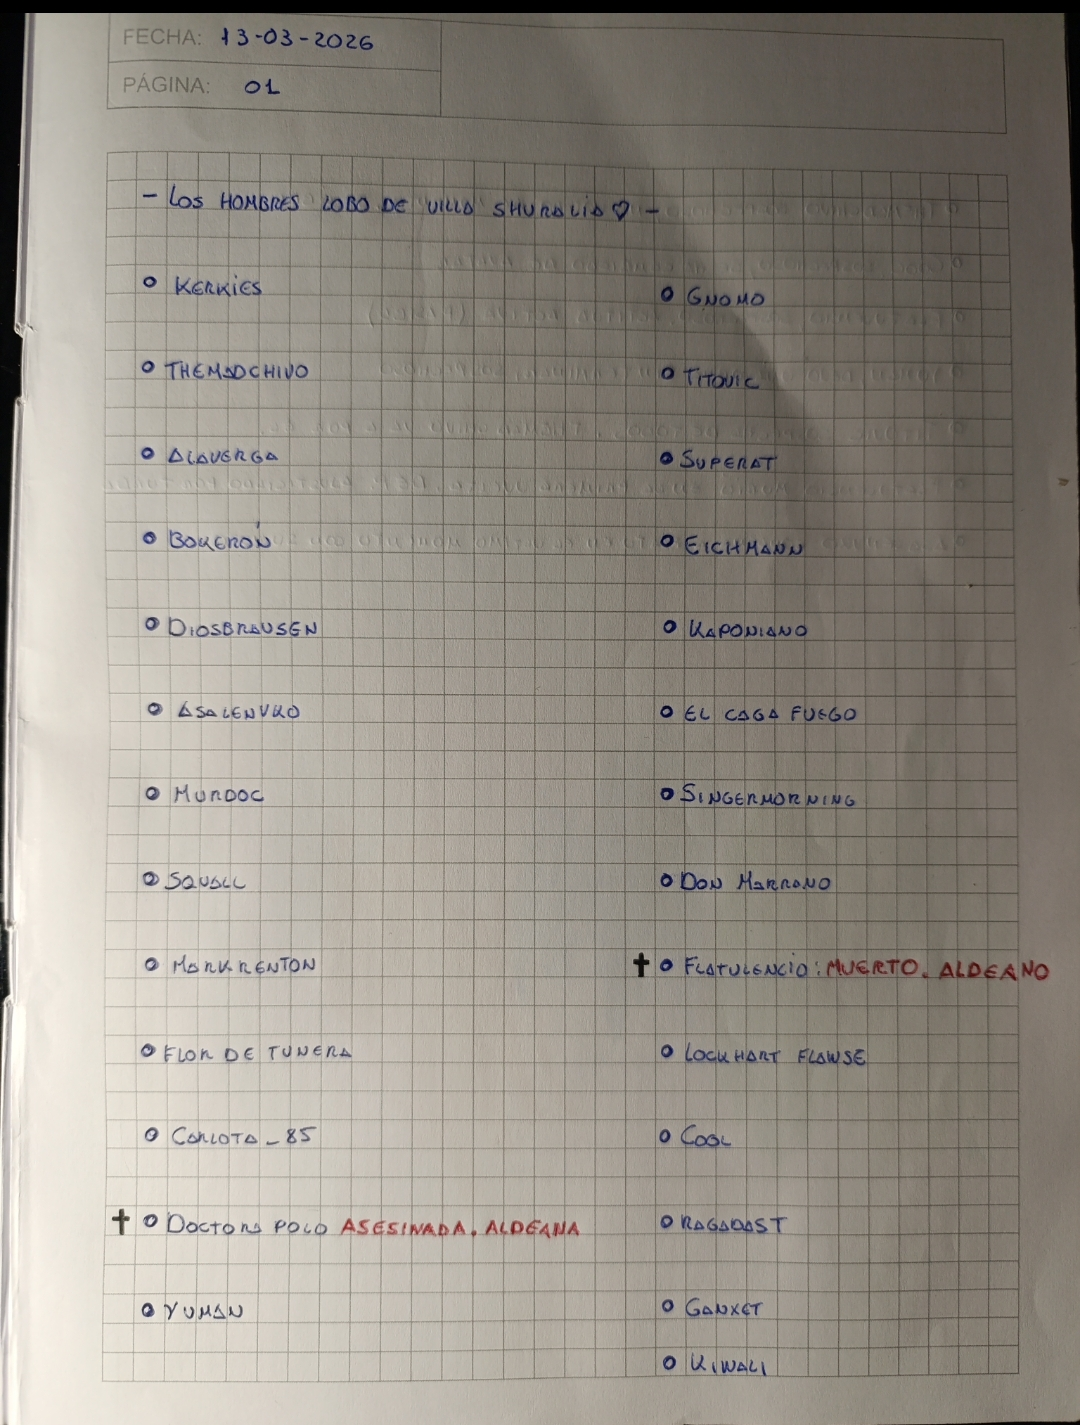 FECHA: 13-03-2026
PÁGINA: 01
- LOS HOMBRES LOBO DE VILLA SHURALIA ♡ -
○ KERKIES
○ THEMADCHIVO
○ ALAVERGA
○ BOKERÓN
○ DIOSBRAUSEN
○ ASALENVKO
○ MURDOC
○ SQUALL
○ MARKRENTON
○ FLOR DE TUNERA
○ CARLOTA_85
✝ ○ DOCTORA POLO ASESINADA. ALDEANA
○ YUMAN
○ GNOMO
○ TITOVIC
○ SUPERAT
○ EICHMANN
○ KAPONIANO
○ EL CAGA FUEGO
○ SINGERMORNING
○ DON MARRANO
✝ ○ FLATULENCIO: MUERTO. ALDEANO
○ LOCKHART FLAWSE
○ COOL
○ RAGADAST
○ GANXET
○ KIWALI